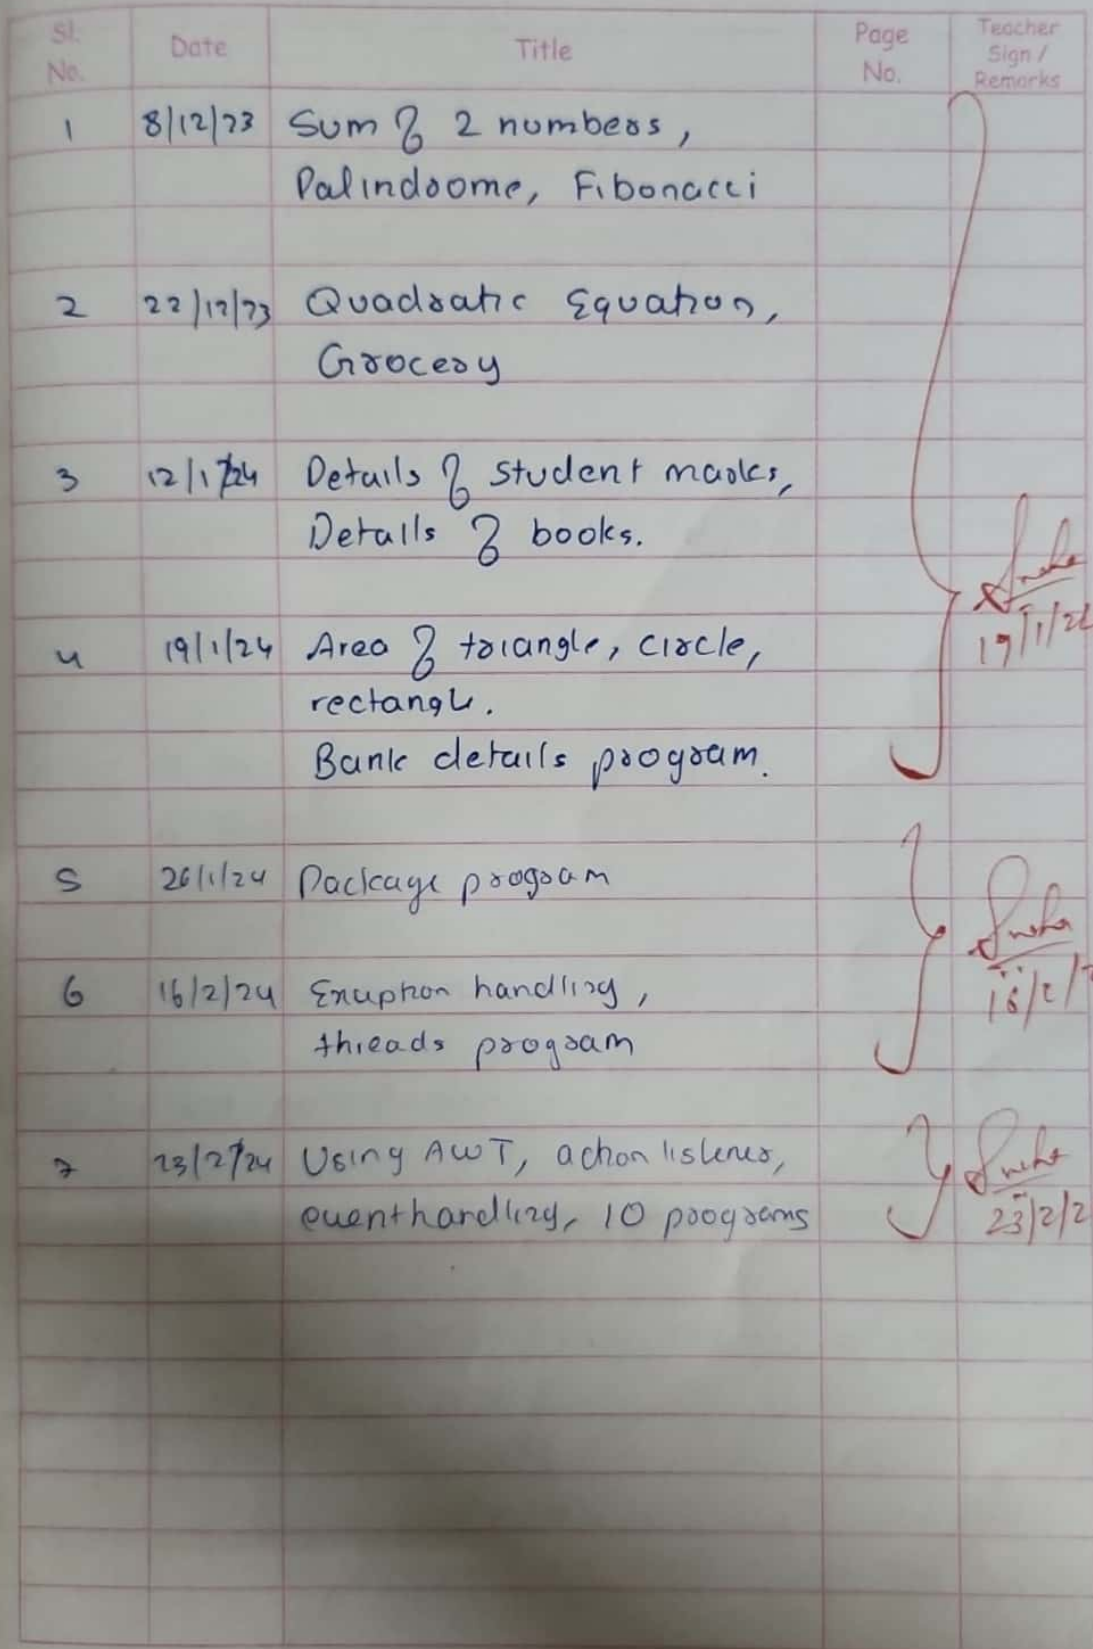 Sl. No. Date Title Page No. Teacher Sign / Remarks
1 8/12/23 Sum of 2 numbers,
Palindrome, Fibonacci
2 22/12/23 Quadratic Equation,
Grocery
3 12/1/24 Details of student marks,
Details of books.
4 19/1/24 Area of triangle, circle,
rectangle.
Bank details program.
19/1/24
5 26/1/24 Package program
6 16/2/24 Exception handling,
threads program
16/2/
7 23/2/24 Using AWT, action listener,
event handling, 10 programs
23/2/2